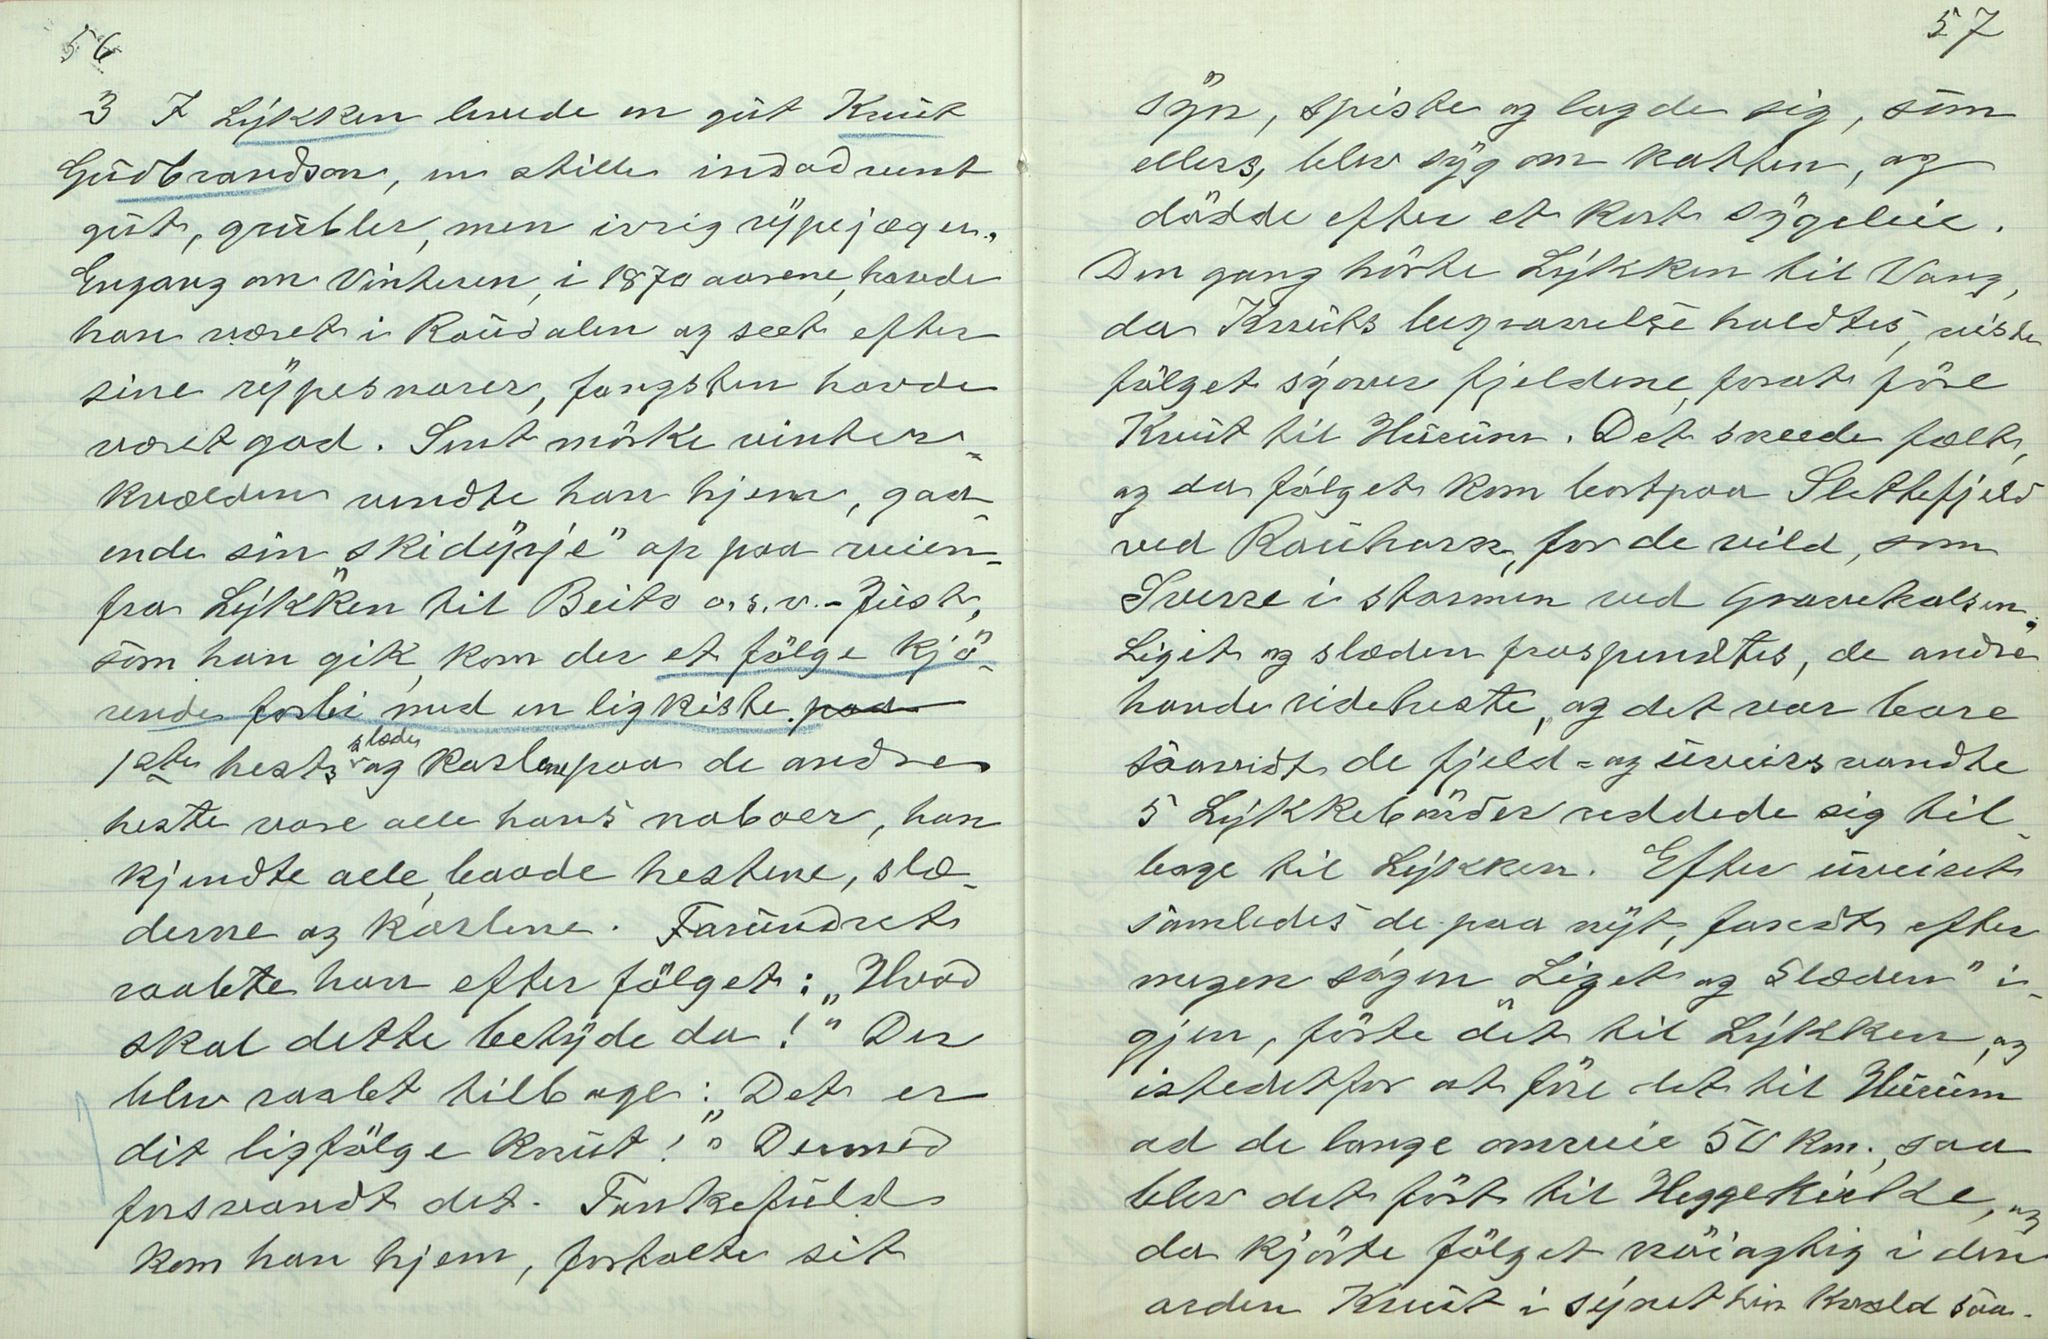 56
3 I Lykken levede en gut Knut
Gudbrandson, en stille indadvent
gut, grubler, men ivrig rypejæger.
Engang om Vinteren, i 1870 aarene, havde
han været i Raudalen og seet efter
sine rypesnarer, fangsten havde
været god. Sent mörke vinter-
kvælden vendte han hjem, gaa-
ende sin "skidyrje" op paa veien
fra Lykken til Beito o.s.v. - Just,
som han gik, kom der et fölge kjö-
rende forbi med en ligkiste. paa
1ste hests slæde og karlene paa de andre
heste vare alle hans naboer, han
kjendte alle, baade hestene, slæ-
derne og karlene. Forundret
raabte han efter fölget: "Hvad
skal dette betyde da!" Der
blev raabt tilbage: "Det er
dit ligfölge Knut!" Dermed
forsvandt det. Tankefuld
kom han hjem, fortalte sit
57
syn, spiste og lagde sig, som
ellers, blev syg om natten, og
dödde efter et kort sygeleie.
Den gang hörte Lykken til Vang,
da Knuts begravelse holdtes, reiste
fölget syover fjeldene, forat före
Knut til Hurum. Det sneede fælt,
og da fölget kom bortpaa Slettefjeld
ved Rauhorn, for de vild, som
Sverre i stormen ved Gravehalsen.
Liget og slæden fraspendtes, de andre
havde rideheste, og det var bare
saavidt de fjeld- og uveirsvandte
5 Lykkebönder reddede sig til-
bage til Lykken. Efter uveiret
samledes de paa nyt, fandt efter
megen sögen "Liget og Slæden" i-
gjen, förte det til Lykken, og
istedetfor at före det til Hurum
ad de lange omveie 50 km., saa
blev det fört til Heggekirke, og
da kjörte fölget nöiagtig i den
orden Knut i synet hin kvæld saa.